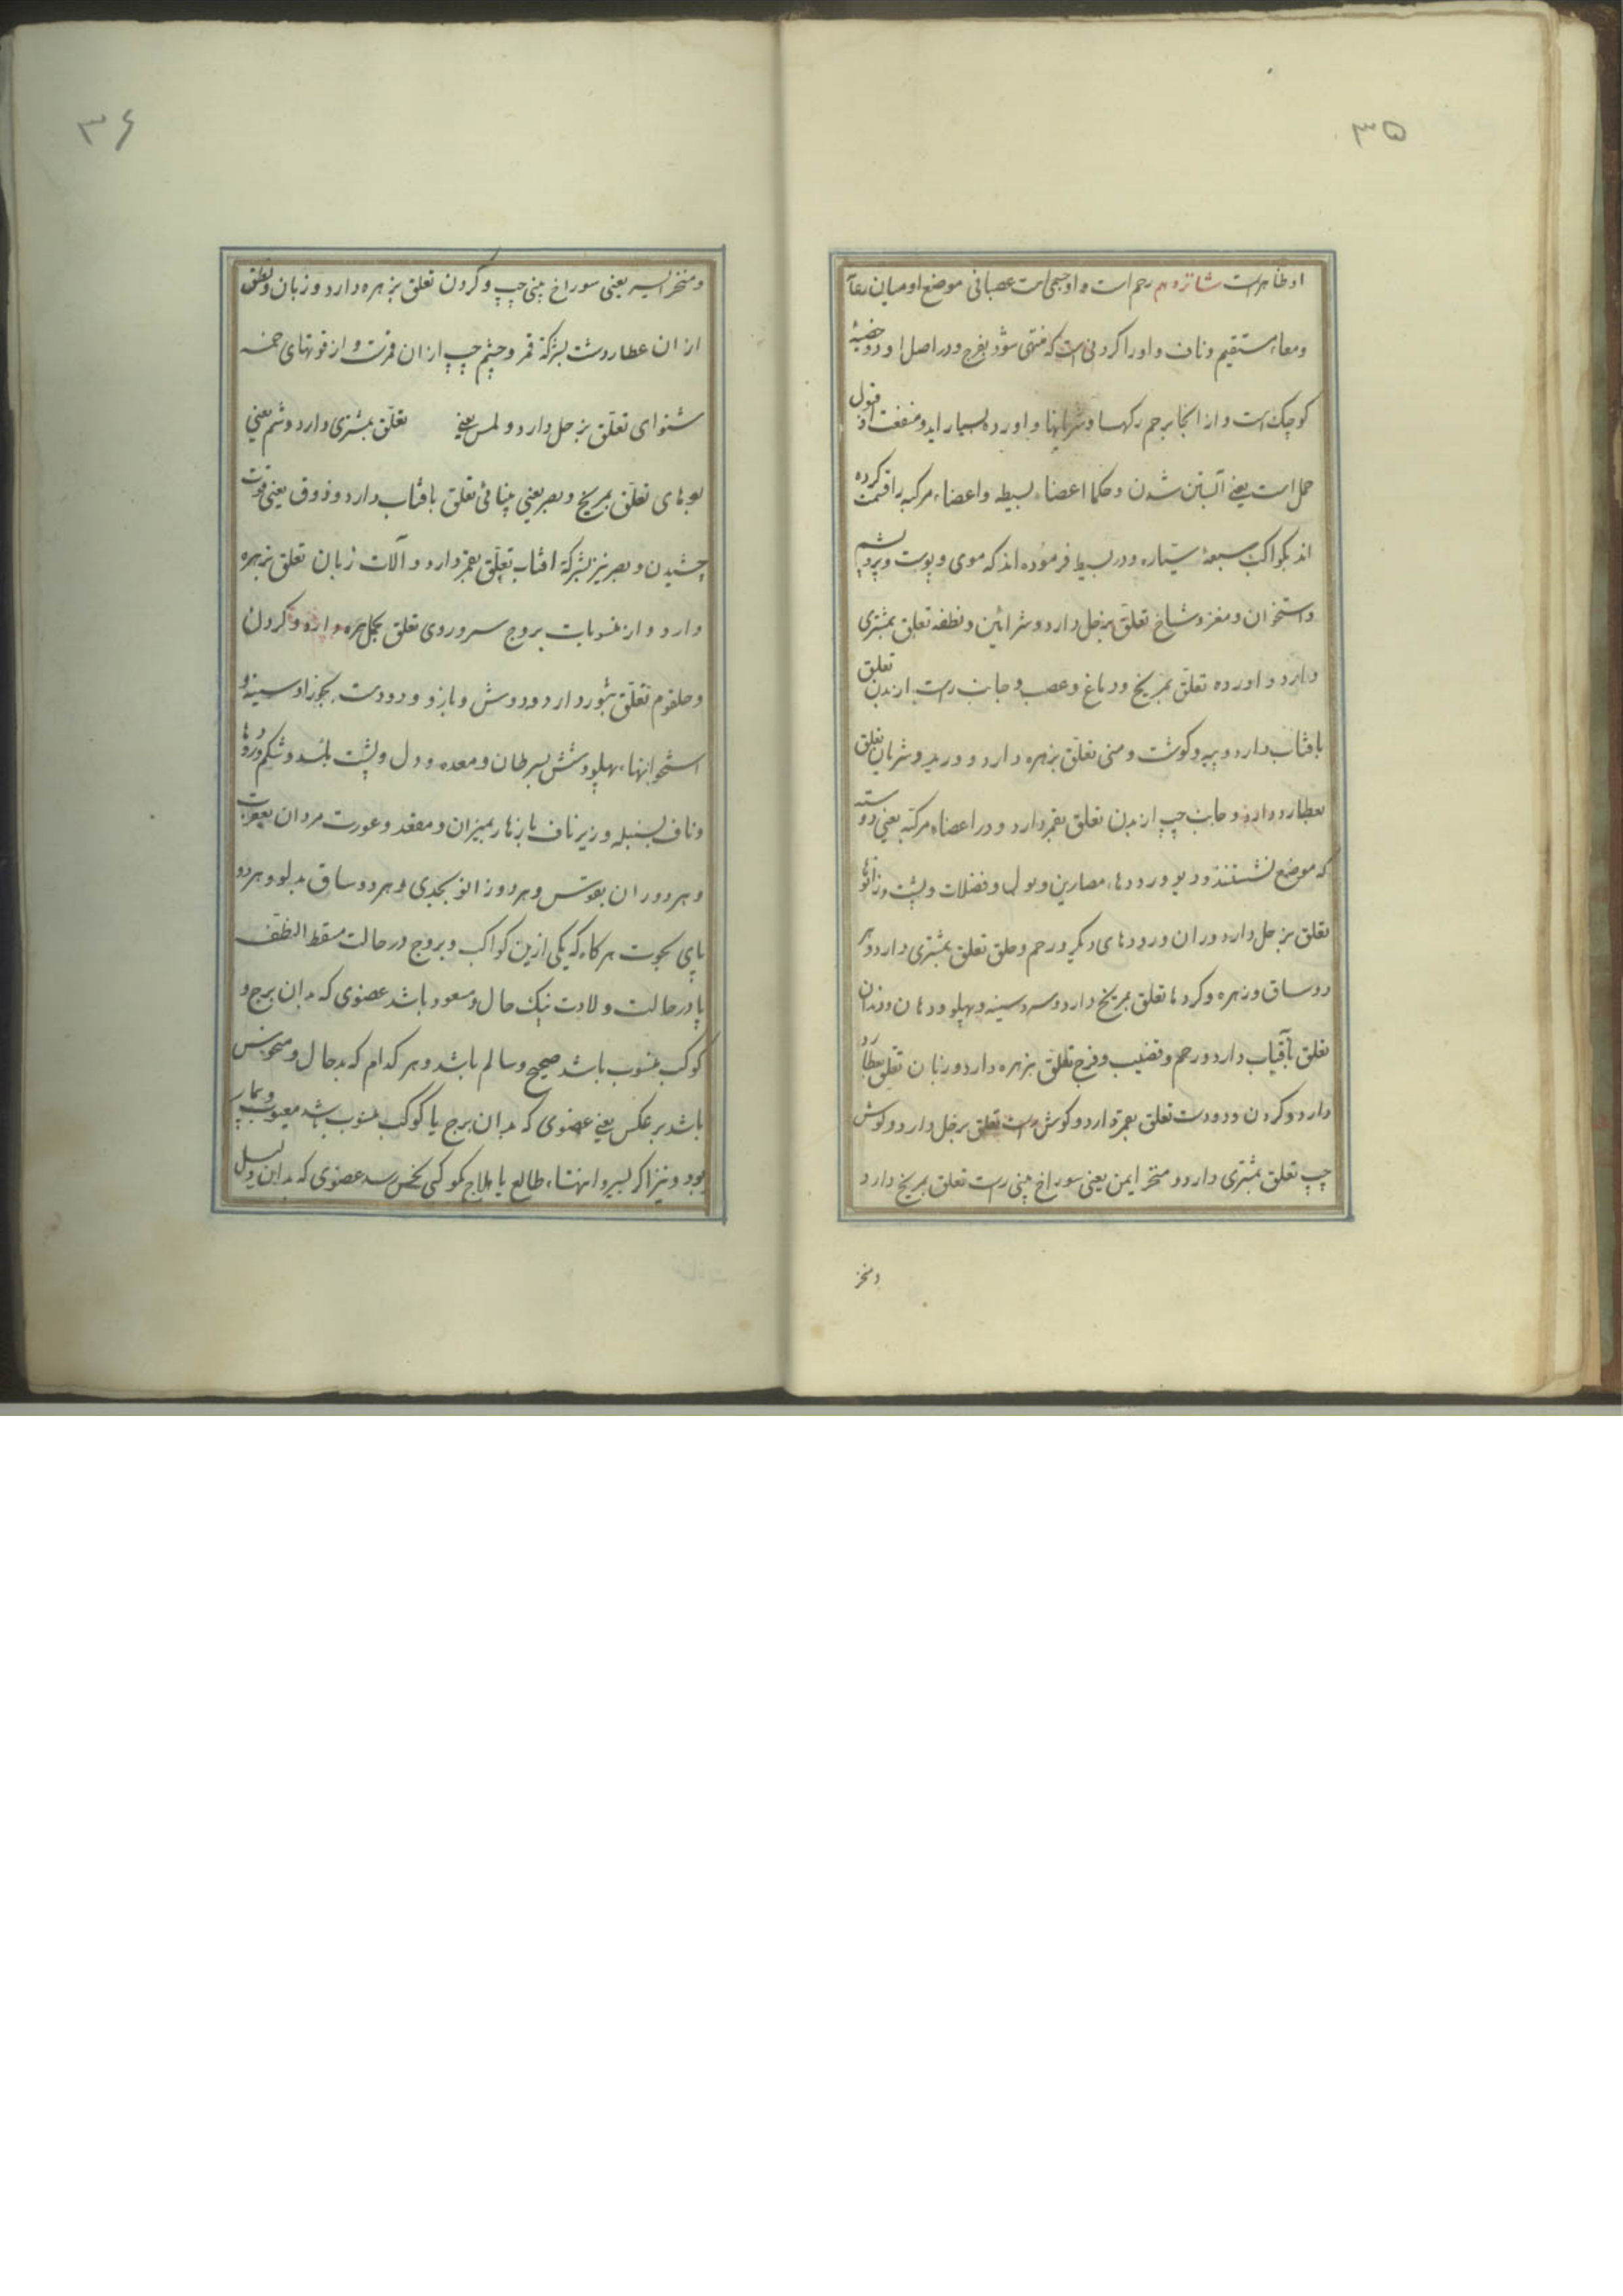 ۳۵
او ظاهر است شانزدهم رحم است و او جسمی است عصبانی موضع او میان
ومعاء مستقیم و ناف و او را کردنی است که منتهی شود بفرج و در اصل او دو خصیهٔ
کوچک است و از انجا برحم رکها و شریانها و اورده بسیار اید و منفعت او قبول
حمل است یعنی آبستن شدن و حکما اعضاء بسیطه و اعضاء مرکبه را قسمت کرده
اند بکواکب سبعهٔ سیّاره و در بسیط فرموده اند که موی و پوست و پر و پشم
و استخوان و مغز و شاخ تعلّق بزحل دارد و شرائین و نطفه تعلق بمشتری
دارد و اورده تعلق بمریخ و دماغ و عصب و جانب راست از بدن تعلق
بافتاب دارد و پیه و کوشت و منی تعلق بزهره دارد و ورید و شریان تعلق
بعطارد دارد و جانب چپ از بدن تعلق بقمر دارد و در اعضاء مرکبه یعنی
که موضع نشستند و دبر و رودها، مصارین و بول و فضلات و پشت و زانوها
تعلق بزحل دارد و ران و رودهای دیگر و رحم و حلق تعلق بمشتری دارد و هر
دو ساق و زهره و کردها تعلق بمریخ دارد و سر و سینه و پهلو و دهان و دندان
تعلق بآفتاب دارد و رحم و قضیب و فرج تعلق بزهره دارد و زبان تعلق بعطارد
دارد و کردن و دو دست تعلق بقمر دارد و کوش راست تعلق بزحل دارد و کوش
چپ تعلق بمشتری دارد و منخر ایمن یعنی سوراخ بینی راست تعلق بمریخ دارد
ومنخر
۳۶
و منخر ایسر یعنی سوراخ بینی چپ و کردن تعلق بزهره دارد و زبان و نطق
از ان عطاردست بشرکة قمر و چشم چپ از ان قمرست و از قوتهای خمسه
شنوای تعلّق بزحل دارد و لمس یعنی تعلّق بمشتری دارد و شم یعنی
بوهای تعلّق بمریخ و بصر یعنی بینائی تعلق بافتاب دارد و ذوق یعنی قوت
چشیدن و بصر نیز بشرکة افتاب تعلّق بقمر دارد و آلات زبان تعلق بزهره
دارد و از منسوبات بروج سر و روی تعلق بحمل دارد و کردن
و حلقوم تعلّق بثور دارد و دوش و بازو و دو دست بجوزا و سینه و
استخوانهاء پهلو و شش بسرطان و معده و دل و پشت باسد و شکم و رودها
و ناف بسنبله و زیر ناف تا زهار بمیزان و مقعد و عورت مردان بعقرب
و هر دو ران بقوس و هر دو زانو بجدی و هر دو ساق بدلو و هر دو
پای بحوت هر کاه که یکی ازین کواکب و بروج در حالت مسقط النطفه
یا در حالت ولادت نیک حال و مسعود باشد عضوی که بدان برج و
کوکب منسوب باشد صحیح و سالم باشد و هر کدام که بد حال و منحوس
باشد بر عکس یعنی عضوی که بدان برج یا کوکب منسوب باشد معیوب و بیمار
بود و نیز اکر بسیر و انتهاء طالع یا هیلاج بکوکبی نحس رسد عضوی که بدان دلیل